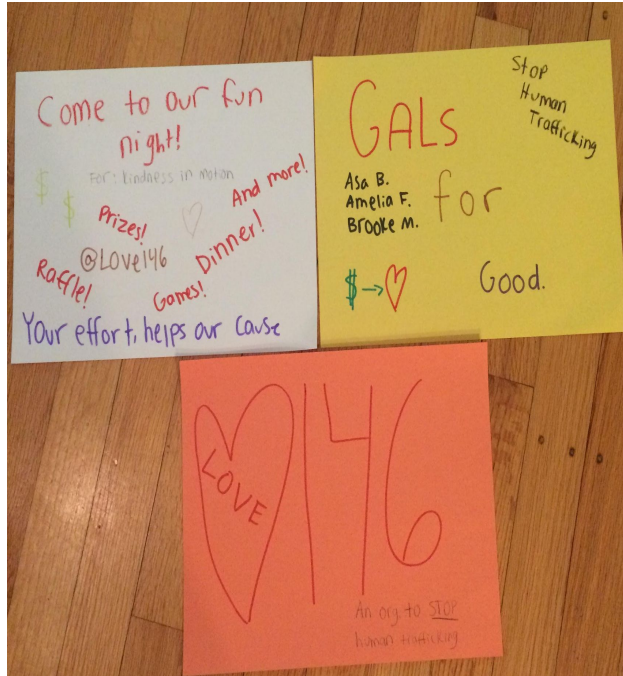 Come to our fun
night!
For: kindness in motion
$
$
And more!
Prizes!
@Love146
Dinner!
Raffle!
Games!
Your effort, helps our cause
Stop
Human
Trafficking
GALS
for
Good.
Asa B.
Amelia F.
Brooke M.
$→
LOVE
146
An org. to STOP
human trafficking